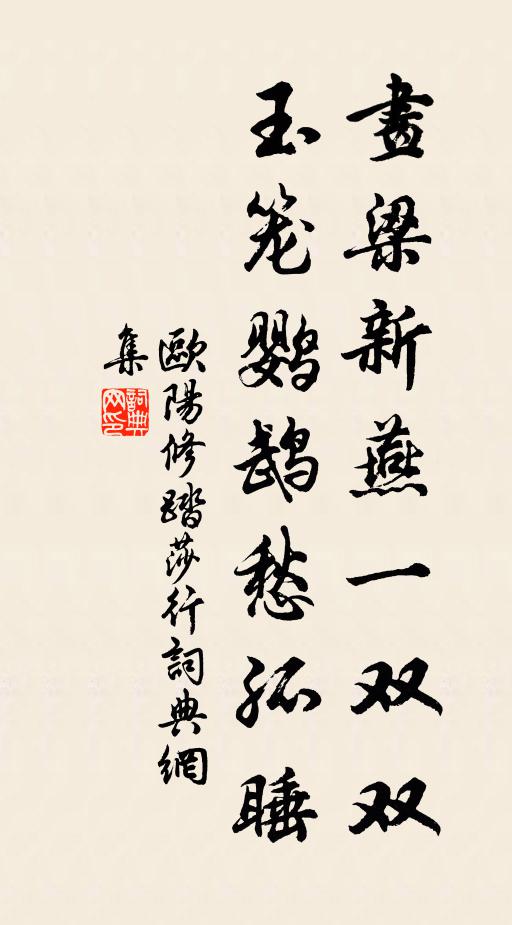 畫梁新燕一双双
玉笼鹦鹉愁孤睡
歐陽修踏莎行詞典網
集
詞典
网印